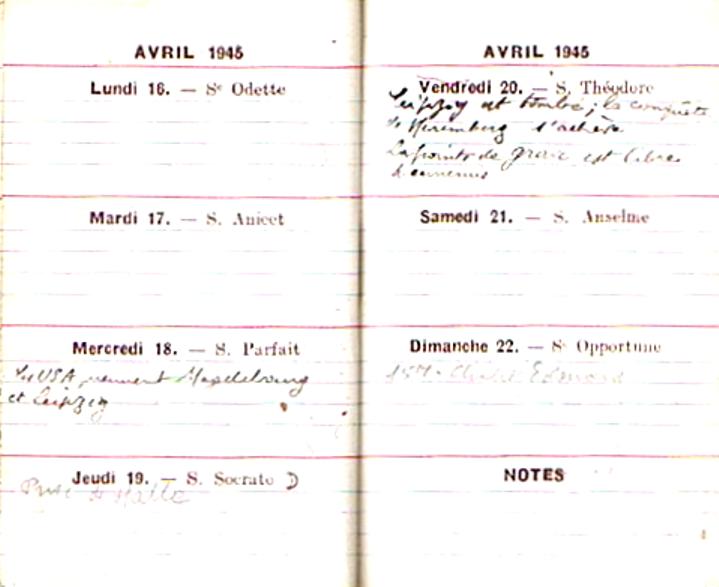 AVRIL 1945
Lundi 16. — Se Odette
Mardi 17. — S. Anicet
Mercredi 18. — S. Parfait
les USA prennent Magdebourg
et Leipzig
Jeudi 19. — S. Socrate
Prise de Halle
AVRIL 1945
Vendredi 20. — S. Théodore
Leipzig est tombé; la conquête
de Nuremberg s'achève
La pointe de grave est libre
d'ennemis
Samedi 21. — S. Anselme
Dimanche 22. — Se Opportune
Edmond
NOTES